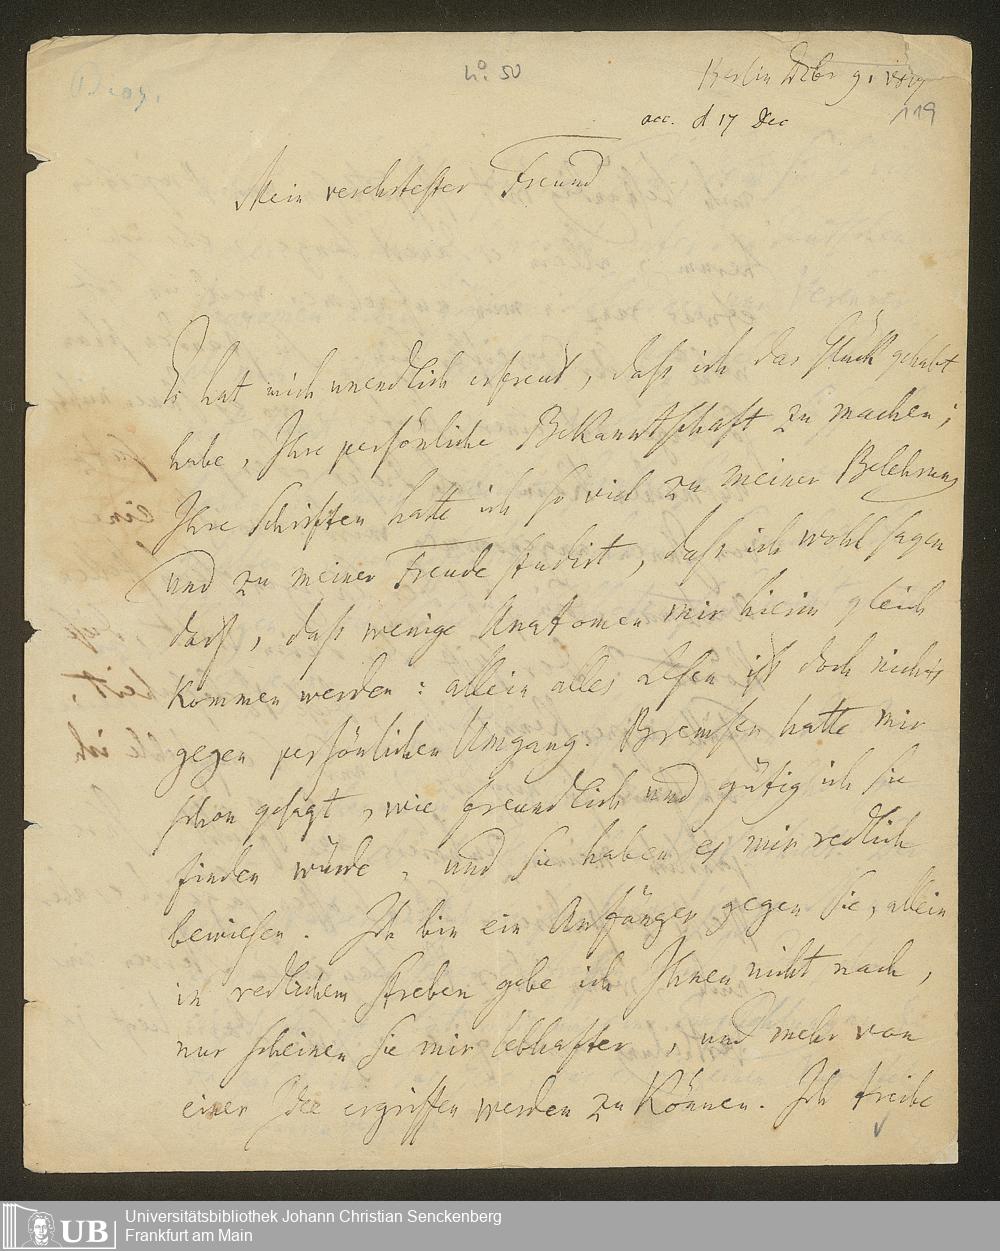 No. 50
Berlin Dcbr 9. 1817
acc. d 17 Dec
119
Mein verehrtester Freund
Es hat mich unendlich erfreut, daß ich das Glück gehabt
habe, Ihre persönliche Bekanntschaft zu machen;
Ihre Schriften hatte ich so viel zu meiner Belehrung
und zu meiner Freude studirt, daß ich wohl sagen
darf, daß wenige Anatomen mir hierin gleich
kommen werden: allein alles Lesen ist doch nichts
gegen persönlichen Umgang. Bremser hatte mir
schon gesagt, wie freundlich und gütig ich Sie
finden würde, und Sie haben es mir redlich
bewiesen. Ich bin ein Anfänger gegen Sie, allein
in redlichem Streben gebe ich Ihnen nicht nach,
nur scheinen Sie mir lebhafter, und mehr von
einer Idee ergriffen werden zu können. Ich treibe
UB
Universitätsbibliothek Johann Christian Senckenberg
Frankfurt am Main